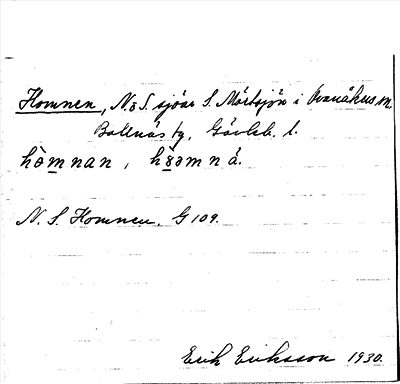 Homnen, N. o S. sjöar S. Mårtsjön i Ovanåkers sn.
Bollnäs tg, Gävleb. l.
hòmnan, hꞷəmn á.
N. S. Homnen, G 109.
Erik Eriksson 1930.